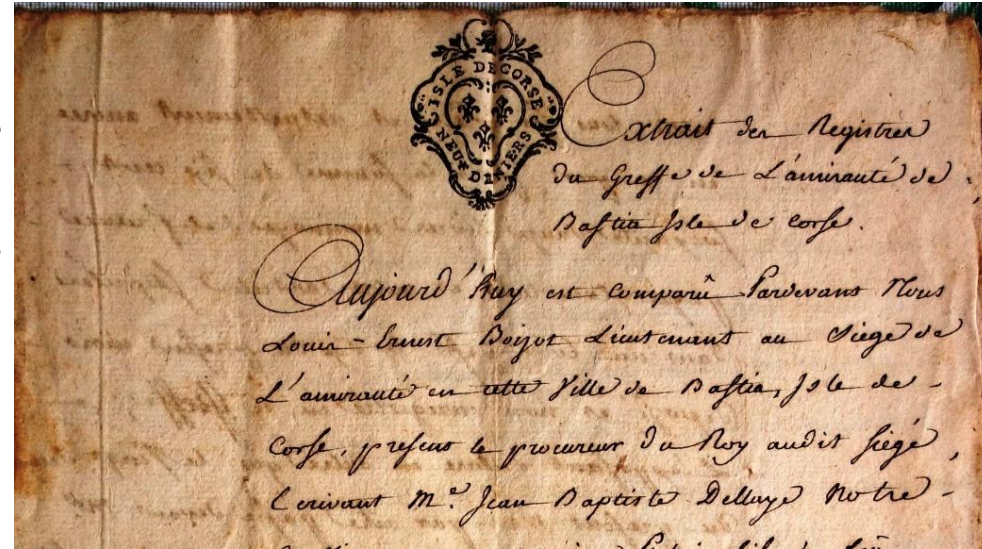 ISLE DE CORSE
NEUF DENIERS
Extrait des Registres
du Greffe de L'amirauté de
Bastia Isle de Corse.
Aujourd'huy est comparû Pardevant Nous
Louis-Ernest Boizot Lieutenant au Siege de
L'amirauté en cette Ville de Bastia, Isle de
Corse, présent le procureur du Roy audit siégé,
Ecrivant M.e Jean Baptiste Dellaye Notre